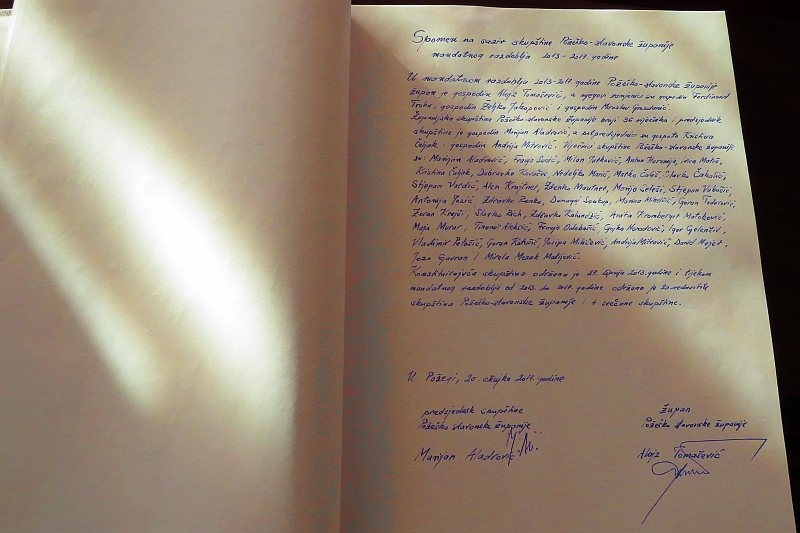 Spomen na saziv skupštine Požeško-slavonske županije
mandatnog razdoblja 2013-2017. godine
U mandatnom razdoblju 2013-2017. godine Požeško-slavonske županije
župan je gospodin Alojz Tomašević, a njegovi zamjenici su gospodin Ferdinand
Troha, gospodin Željko Jakopović i gospodin Miroslav Grozdanić.
Županijska skupština Požeško-slavonske županije broji 35 vijećnika i predsjednik
skupštine je gospodin Marijan Aladrović, a potpredsjednici su gospođa Kristina
Čeljak i gospodin Andrija Mitrović. Vijećnici skupštine Požeško-slavonske županije
su: Marijan Aladrović, Franjo Lucić, Milan Tutković, Antun Ivica Matiš,
Kristina Čeljak, Dubravko Kovačević, Nedeljko Marić, Matko Čališ, Slavko Čakalić,
Stjepan Vardić, Alen Krajfnet, Zdenko Mautner, Marijo Šeleši, Stjepan Vukašić,
Antonija Jozić, Zdravko Ronko, Domagoj Soukup, Marina Mihelčić, Goran Todorović,
Zoran Krejči, Slavko Bich, Zdravko Kolundžić, Anita Kromberger Matoković,
Maja Motor, Tihomir Aleksić, Franjo Odobašić, Gojko Nenadović, Igor Gelenčir,
Vladimir Petošić, Goran Katušić, Josipa Miličević, Andrija Mitrović, David Mojet,
Jozo Gavran i Mirela Mesak Matijević.
Konstituirajuća skupština održana je 27. lipnja 2013. godine i tijekom
mandatnog razdoblja od 2013. do 2017. godine održano je 20 redovitih
skupština Požeško-slavonske županije i 4 svečane skupštine.
U Požegi, 20. ožujka 2017. godine
predsjednik skupštine
Požeško slavonske županije
Marijan Aladrović
Župan
Požeško slavonske županije
Alojz Tomašević